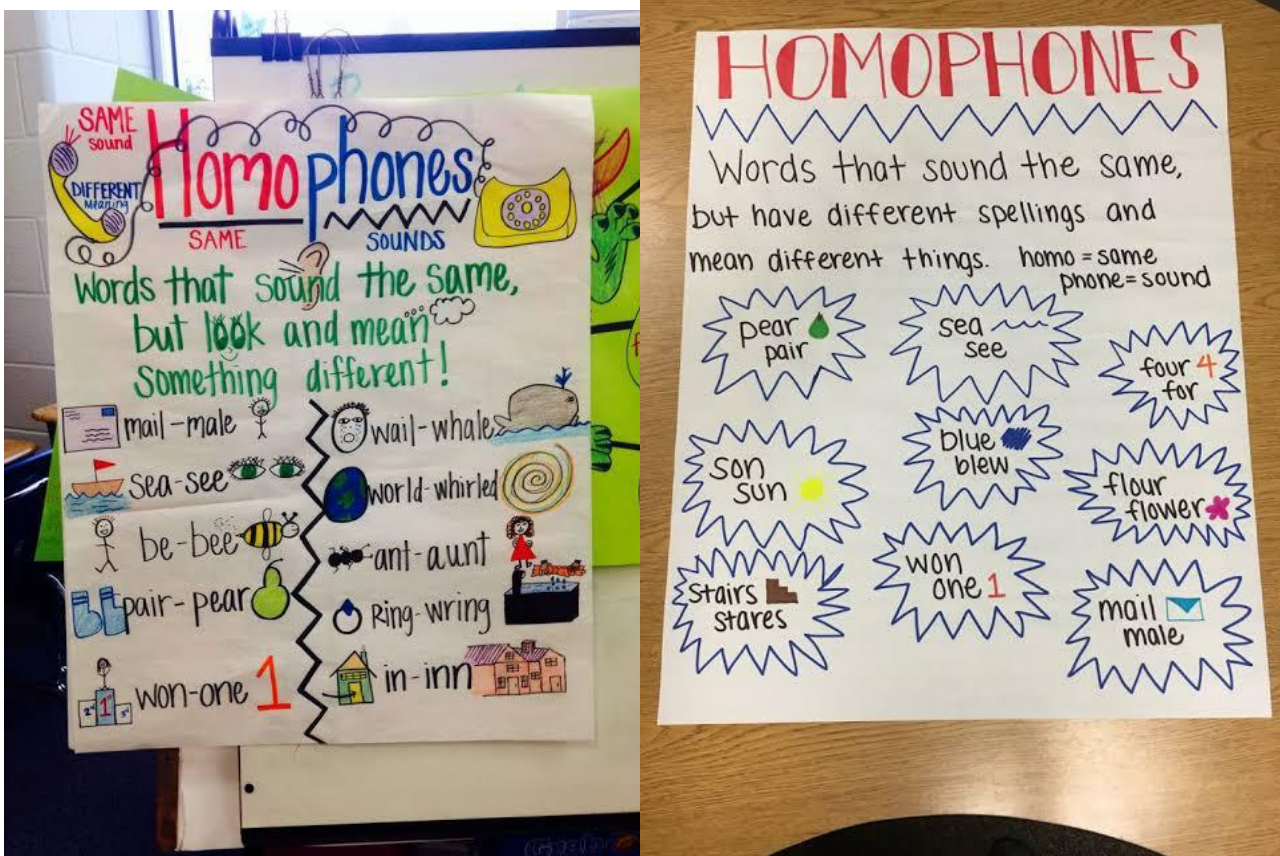 SAME
sound
DIFFERENT
Meaning
Homophones
SAME SOUNDS
Words that sound the same,
but look and mean
something different!
mail-male
sea-see
be-bee
pair-pear
won-one 1
2nd 1st 3rd
wail-whale
world-whirled
ant-aunt
Ring-wring
in-inn
HOMOPHONES
Words that sound the same,
but have different spellings and
mean different things. homo = same
phone = sound
pear
pair
sea
see
four 4
for
son
sun
blue
blew
flour
flower
stairs
stares
won
one 1
mail
male